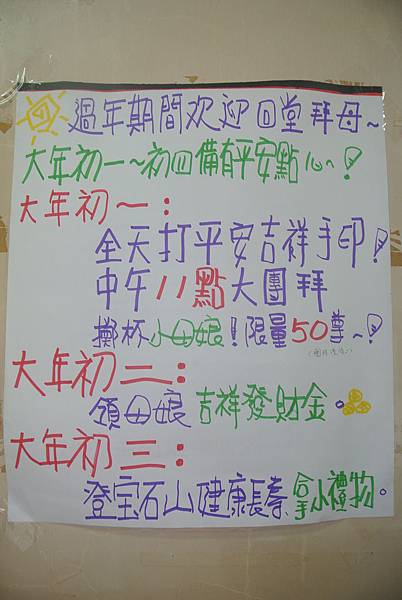 週年期間欢迎回堂拜母~
大年初一~初四備有平安點心~!
大年初一:
全天打平安吉祥手印!
中午11點大團拜
擲杯小母娘!限量50尊~!
大年初二:
領母娘吉祥發財金。
大年初三:
登宝石山健康長壽 拿手小禮物。